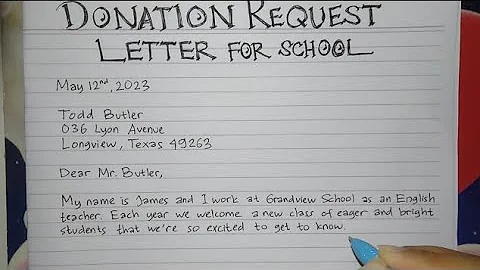 DONATION REQUEST
LETTER FOR SCHOOL
May 12nd, 2023
Todd Butler
036 Lyon Avenue
Longview, Texas 49263
Dear Mr. Butler,
My name is James and I work at Grandview School as an English
teacher. Each year we welcome a new class of eager and bright
students that we're so excited to get to know.